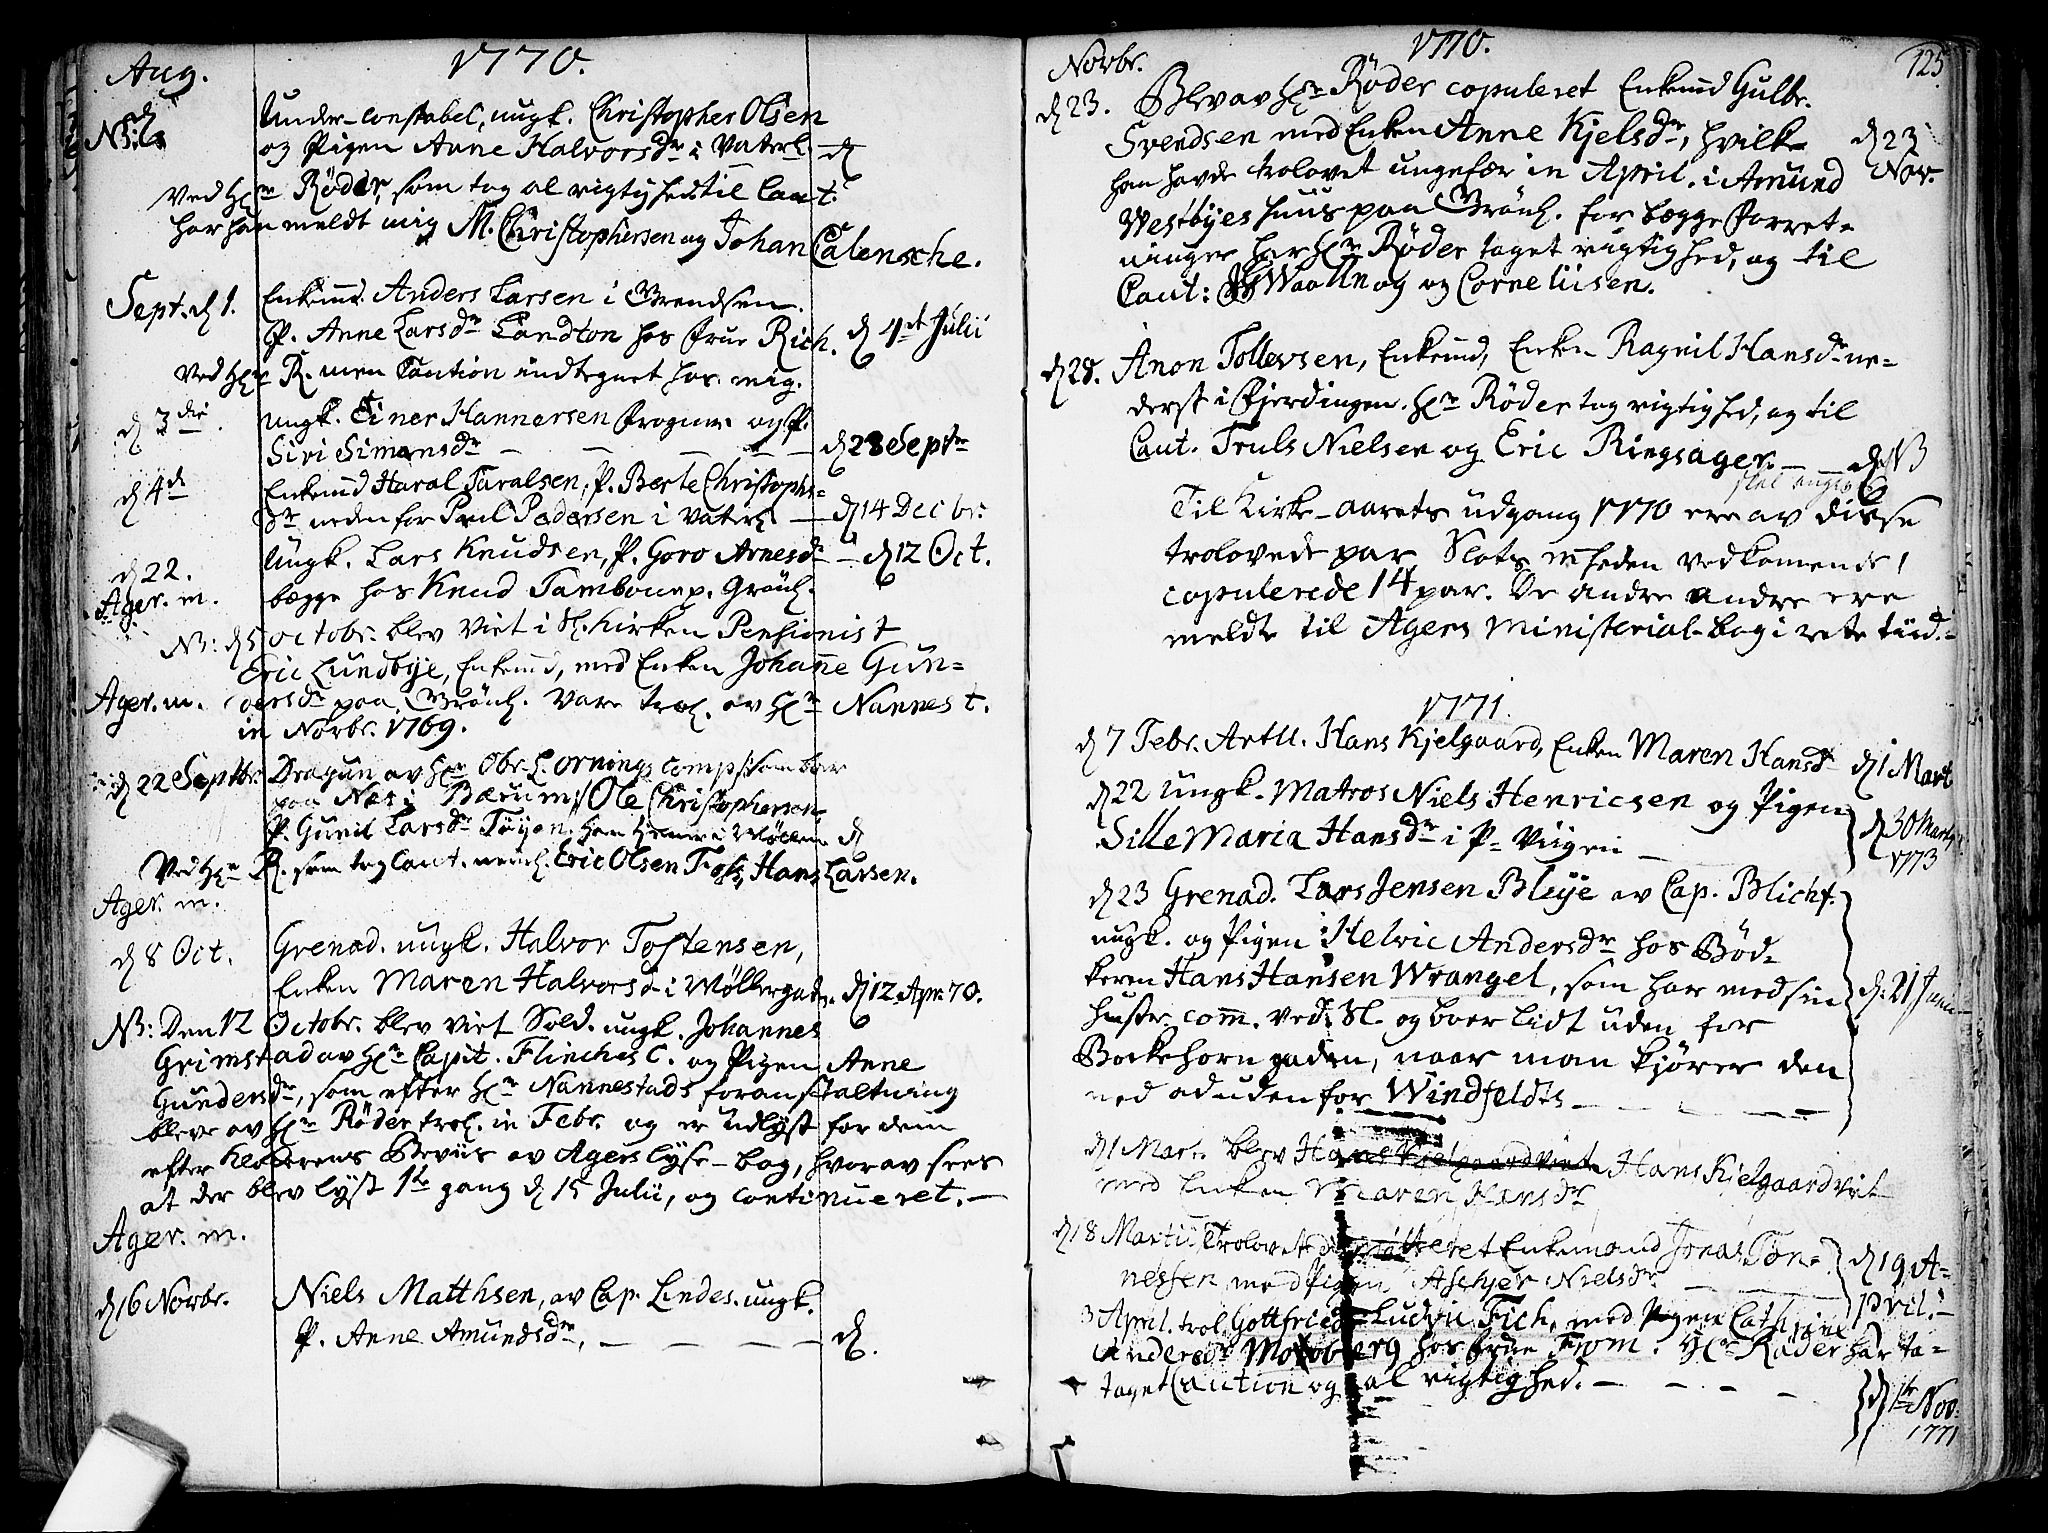 1770.
Aug.
Under-constabel, ungk. Christopher Olsen
og Pigen Anne Halvorsdr i Vaterl. — d
Ved Hr Röder, som tog al rigtighed til Caut:
har han meldt mig M. Christophersen og Johan Calensche.
Sept. d 1. Enkemd. Anders Larsen i Grendsen.
P. Anne Larsdr Landton hos Frue Rich. d 4de Julii
Ved Hr R. men Caution indtegnet hos mig.
d 3die. ungk. Einer Hannersen Frogner og P.
Siri Simonsdr — — — — d 28 Septr
d 4de Enkemd Haral Taralsen, P. Berte Christophs-
dr neden for Poul Pedersen i Vaterl. — d 14 Decbr:
d 22. Ungk. Lars Knudsen, P. Goro Arnesdr — d 12 Oct.
Ager. m. begge hos Knud Tambour p. Grönl.
NB: d 5 octobr. blev viet i Sl. kirken Pensionist
Eric Lundbye, Enkemd, med Enken Johanne Gun-
Ager. m. dersdr paa Grönl. vare trol. av Hr Nannest.
in Novbr. 1769.
d 22 Septbr. Dragun av Hr Obr. L. Ornings comp: som boer
paa Næs i Bærum, Ole Christophersen,
P. Gunil Larsdr Töyen. d
Ved Hr R. som tog Caut. neml. Eric Olsen Hans Larsen.
Ager. m.
d 8 Oct. Grenad. ungk. Halvor Tostensen,
Enken Maren Halvorsd i Möllergaden. d 12. Apr. 70.
NB: Den 12 Octobr. blev viet Sold. ungk. Johannes
Grimstad av Hr Capit. Flinches C. og Pigen Anne
Gundersdr, som efter Hr Nannestads foranstaltning
bleve av Hr Röder trol. in Febr. og er Udlyst for dem
efter Klokkerens Beviis av Agers lyse-bog, hvorav sees
at der blev lyst 1te gang d 15 Julii, og continueret. —
Ager. m.
d 16 Novbr. Niels Matthsen, av Cap. Lindes. ungk.
P. Anne Amundsdr, — — — — d.
1770. 125
Novbr.
d 23. Blev av Hr Röder copuleret Enkemd Gulbr.
Svendsen med Enken Anne Kjelsdr, hvilke d 23
han havde trolovet ungefær in April. i Amund Nov.
Westbyes huus paa Grönl. for begge Forret-
ninger har Hr Röder taget rigtighed, og til
Caut: Waalln og og Corneliisen.
d 28. Anon Tollevsen, Enkemd, Enken Ragnil Hansdr ne-
derst i Fjerdingen. Hr Röder tog rigtighed, og til
Caut. Truls Nielsen og Eric Ringsager. — — d NB
Til Kirke-aarets udgang 1770 ere av disse
trolovede par Slots m:heden vedkomende,
copulerede 14 par. De andre andre ere
meldte til Agers Ministerial-bog i rette tiid.
1771.
d 7 Febr. Artll. Hans Kjelgaard, Enken Maren Hansdr d 1 Mart
d 22 ungk. Matros Niels Henricsen og Pigen
Sille Maria Hansdr i P. Viigen — d 30 Marty
1773
d 23 Grenad. Lars Jensen Bleye av Cap. Blichf.
ungk. og Pigen Helvic Andersdr hos Bød-
keren Hans Hansen Wrangel, som har med sin d: 21 Junii
hustr. comm. ved Sl. og boer lidt uden for
Bockehorn gaden, naar man kjører den
ned ad uden for Windfeldts — — — —
d 1 Mart. blev Hans Kjelgaard viet Hans Kjelgaard viet
med Enken Maren Hansdr
d 18 Martii Trolovet Enkemand Jonas Tön-
nessen med Pigen Aschjer Nielsdr — — d 19 A-
pril.
3 April. trol. Gottfried Ludvii Fich, med Pigen Cathrine
Andersdr hos Frue From. Hr Röder har ta-
taget Caution og al rigtighed. — — — — d 1te Nov:
1771